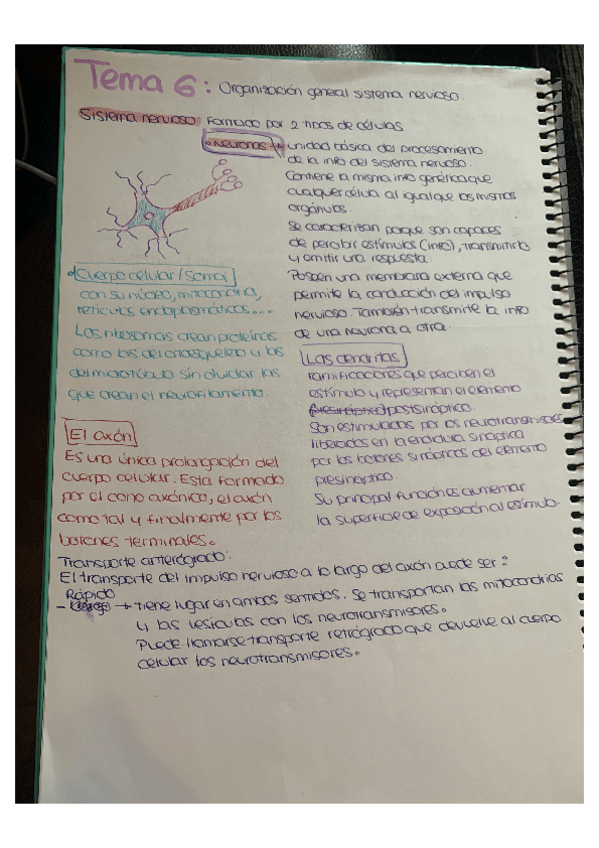 Tema 6: Organización general sistema nervioso.
Sistema nervioso: Formado por 2 tipos de células
• Neuronas → unidad básica del procesamiento
de la info del sistema nervioso.
Contiene la misma info genética que
cualquier célula al igual que los mismos
orgánulos.
Se caracterizan porque son capaces
de percibir estímulos (info), transmitirla
y emitir una respuesta.
Poseen una membrana externa que
permite la conducción del impulso
nervioso. También transmite la info
de una neurona a otra.
Cuerpo celular/Soma
con su núcleo, mitocondria,
retículos endoplasmáticos...
Los ribosomas crean proteínas
como las del citoesqueleto y las
del microtúbulo sin olvidar las
que crean el neurofilamento.
Las dendritas
ramificaciones que perciben el
estímulo y representan el elemento
presináptico postsináptico.
Son estimulados por los neurotransmisores
liberados en la hendidura sináptica
por los botones sinápticos del elemento
presináptico.
Su principal función es aumentar
la superficie de exposición al estímulo.
El axón
Es una única prolongación del
cuerpo celular. Esta formado
por el cono axónico, el axón
como tal y finalmente por los
botones terminales.
Transporte anterógrado:
El transporte del impulso nervioso a lo largo del axón puede ser:
Rápido
- → tiene lugar en ambos sentidos. Se transportan las mitocondrias
y las vesículas con los neurotransmisores.
Puede llamarse transporte retrógrado que devuelve al cuerpo
celular los neurotransmisores.